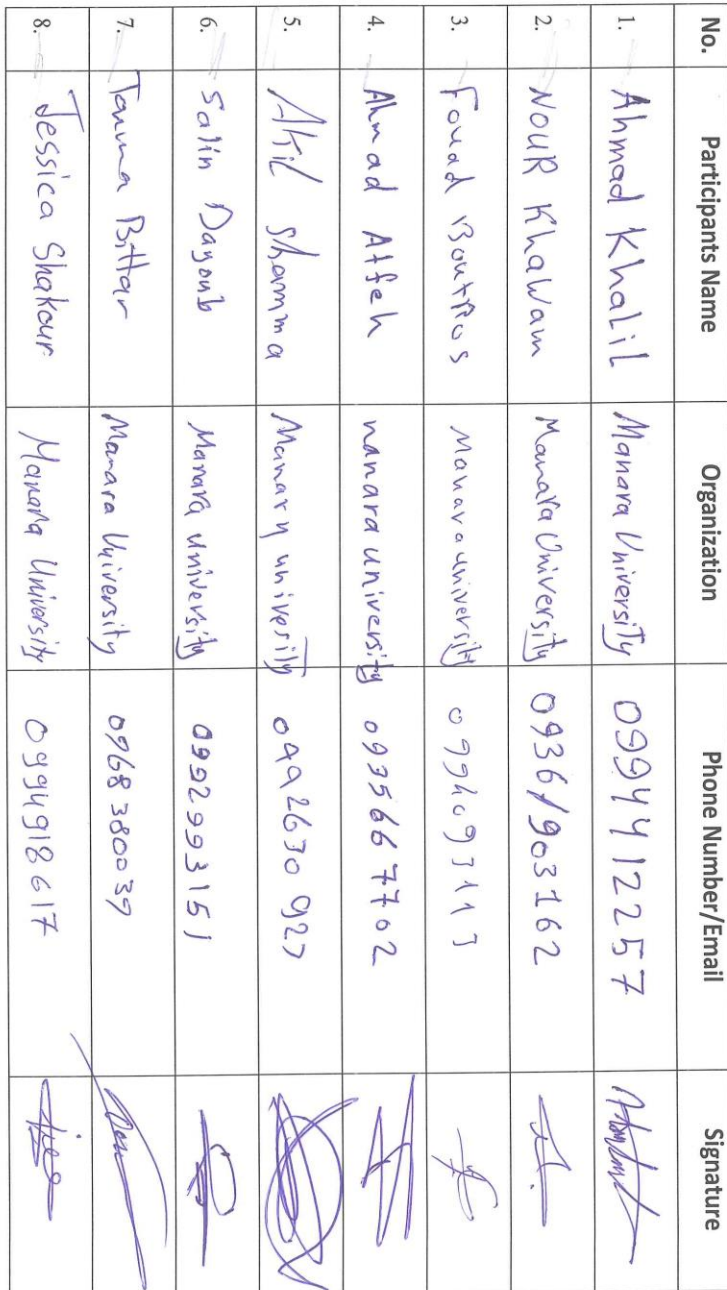 No. Participants Name Organization Phone Number/Email Signature
1. Ahmad Khalil Manara University 0994412257
2. NOUR Khawam Manara University 0936/903162
3. Fouad Boutros Manara university
4. Ahmad Atfeh manara university 0935667702
5. Akil Shamma Manary university
6. Salin Dayoub Manara university 0992993151
7. Bittar Manara University 0968380039
8. Jessica Shakour Manara University 0994918617